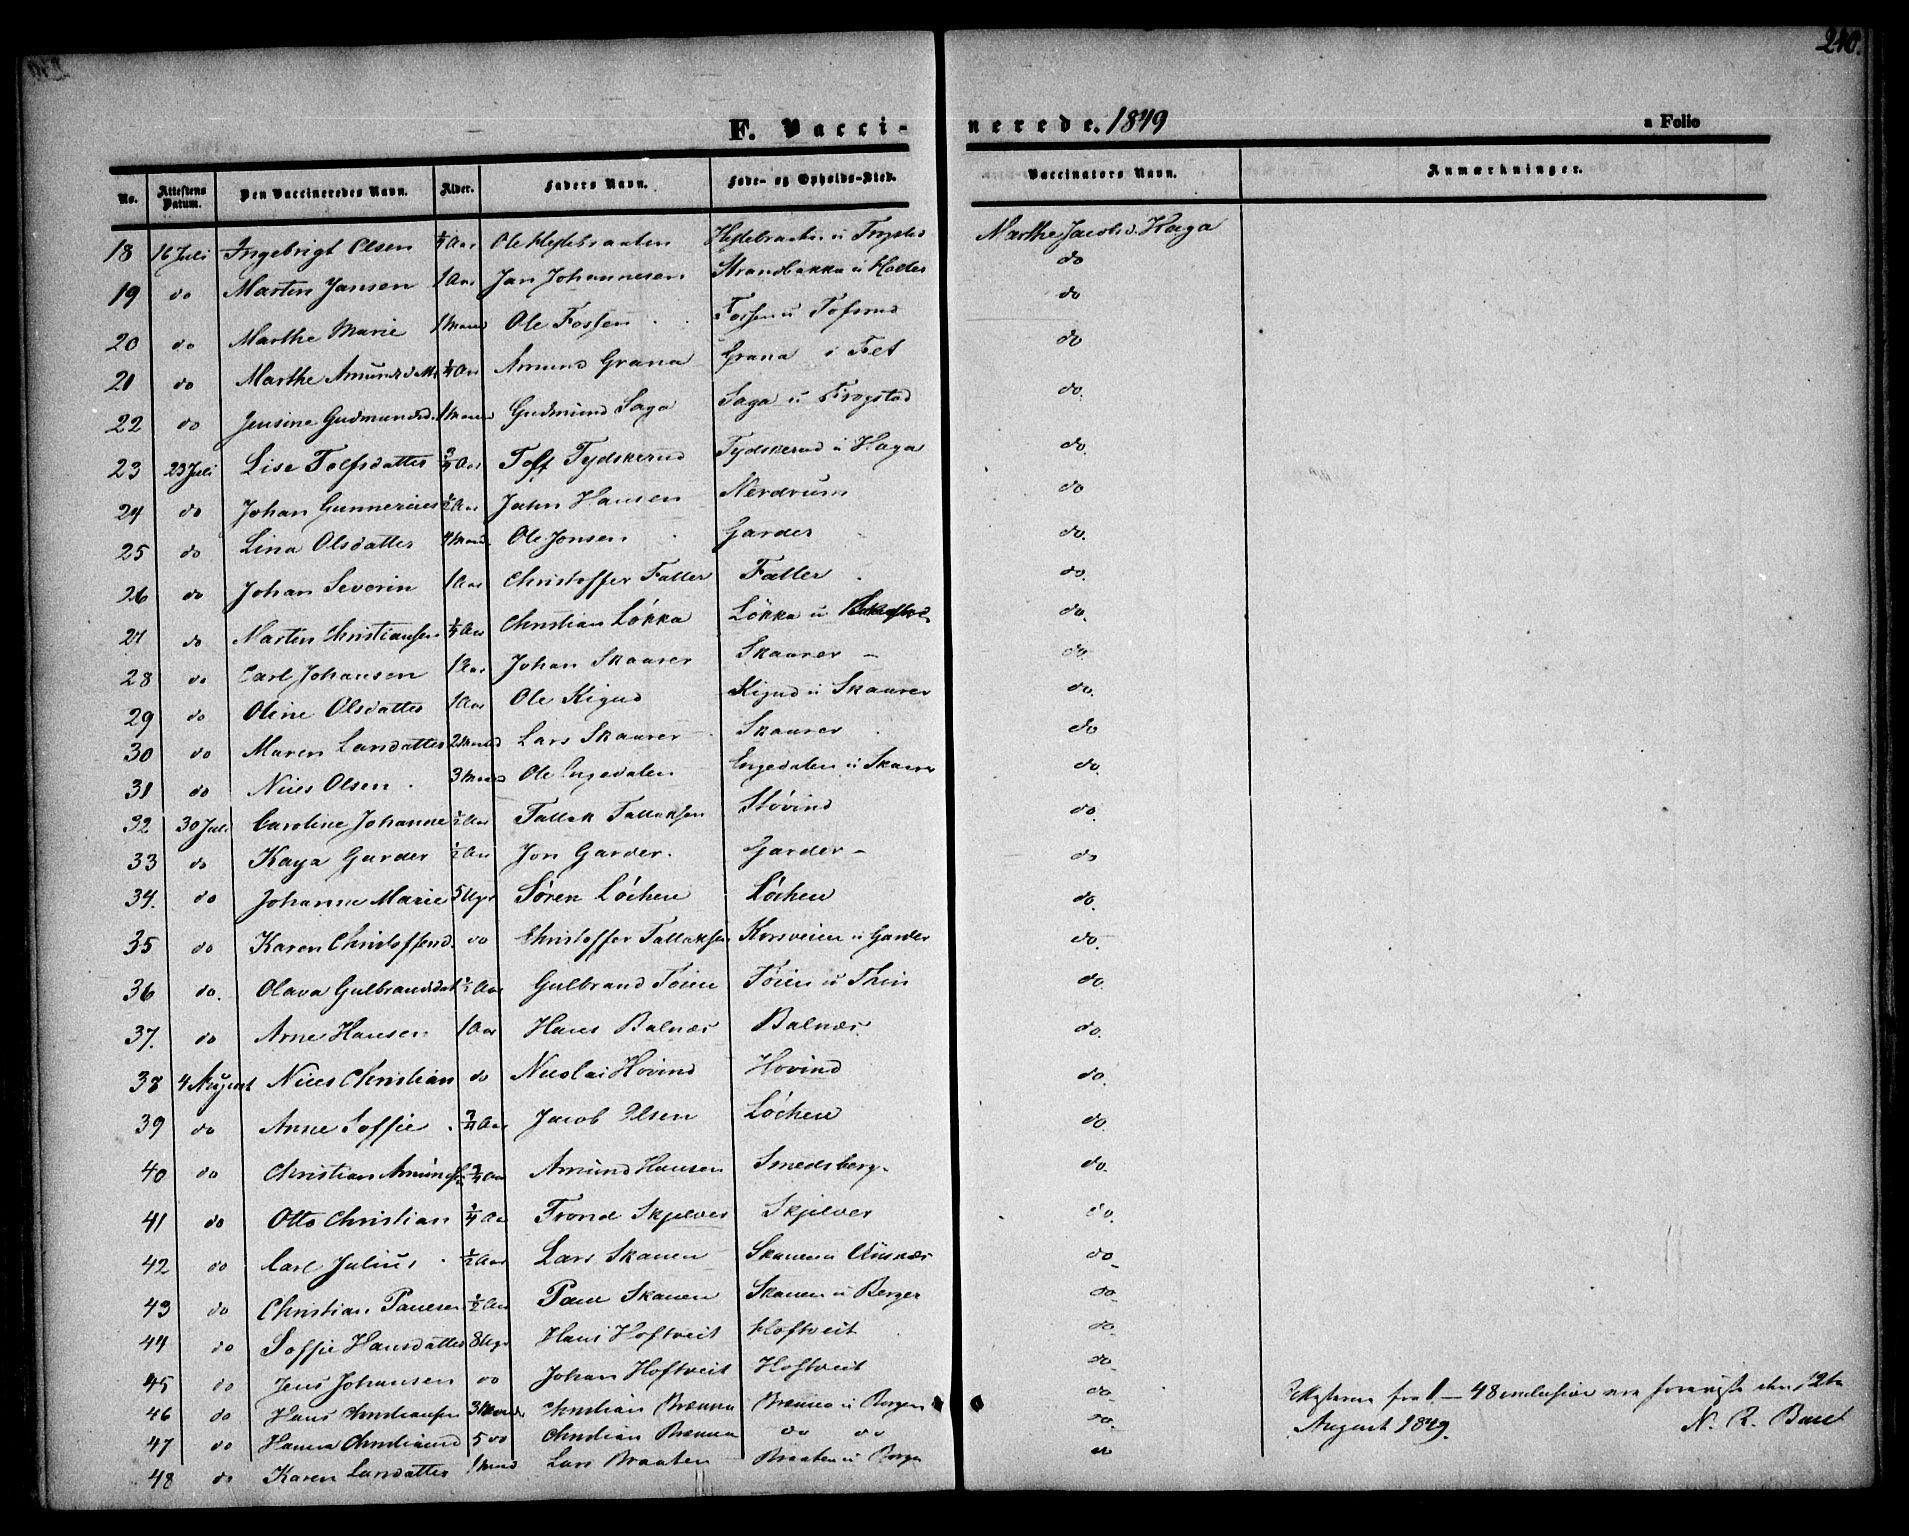 240.
F. Vaccinerede. 1849
a Folio
No. Attestens Datum. Den Vaccineredes Navn. Alder. Faders Navn. Føde- og Opholds-Sted. Vaccinators Navn. Anmærkninger.
18 16 Juli Ingebrigt Olsen Aar Ole Hejlebraaten u Frogstad Marthe Jacobsd. Haga
19 do Martin Jansen 1 Aar Jan Johannesen Strandbakka u do
20 do Marthe Marie 1 Maaned Ole Fossen Fossen u Tofsrud do
21 do Marthe Amundsd. Aar Amund Grana Grana i Fet do
22 do Jensine Gudmundsd. 1 Maaned Gudmund Saga Saga u Frogstad do.
23 23 Juli Lise Tolfsdatter 3/4 Aar Tolf Tydskerud Tydskerud u Haga do.
24 do Johan Gunnerius 1/2 Aar Jahn Hansen Nerdrum do
25 do Lina Olsdatter 4 Maand Ole Jonsen Garder do.
26 do Johan Severin 1 Aar Christoffer Faller Faller do.
27 do Martin Christiansen Aar Christian Løkka Løkka u do.
28 do Carl Johansen 1 Aar Johan Skaarer Skaarer do.
29 do Oline Olsdatter 1 Aar Ole Kigud Kigud u Skaarer do.
30 do Maren Larsdatter 2 Maaned Lars Skaarer Skaarer do
31 do Niels Olsen 3 Maaned Ole Engedalen Engedalen u Skaarer do.
32 30 Juli Caroline Johanne 1/2 Aar Tallak Tallaksen Støvind do.
33 do Kaya Garder 1/2 Aar Jon Garder. Garder do
34. do Johanne Marie 5 Uger Søren Løchen Løchen do.
35 do Karen Christoffersd. do Christoffer Tallaksen Korsveien u Garder do.
36 do. Olava Gulbrandsdat 1/2 Aar Gulbrand Tøien Tøien u Thin do.
37. do Arne Hansen 1 Aar Hans Balnæs Balnæs do.
38 4 August Niels Christian do Nicolai Hovind Hovind do.
39 do Anne Soffie 3/4 Aar Jacob Olsen Løchen do.
40 do Christian Amundsen 3/4 Aar Amund Hansen Smedsberg do.
41 do Otto Christian Aar Trond Skjelver Skjelver do.
42 do Carl Julius 1/2 Aar Lars Skauen Skauen u do
43 do Christian Paulsen 1/2 Aar Paul Skauen Skauen u Berger do
44 do Soffie Hansdatter 8 Uger Hans Hoftveit Hoftveit do
45 do Jens Johansen do Johan Hoftveit Hoftveit do
46 do Hans Christiansen 3 Maaneder Christian Brenna Brenna u Borgen do
47 do Hanna Christiansd 5 do Christian Brenna do do do.
48 do Karen Larsdatter 1 Maaned Lars Braaten Braaten u Borgen do
Attesterne fra 1 - 48 inclusive ere foreviste den 12te
August 1849. N. R.